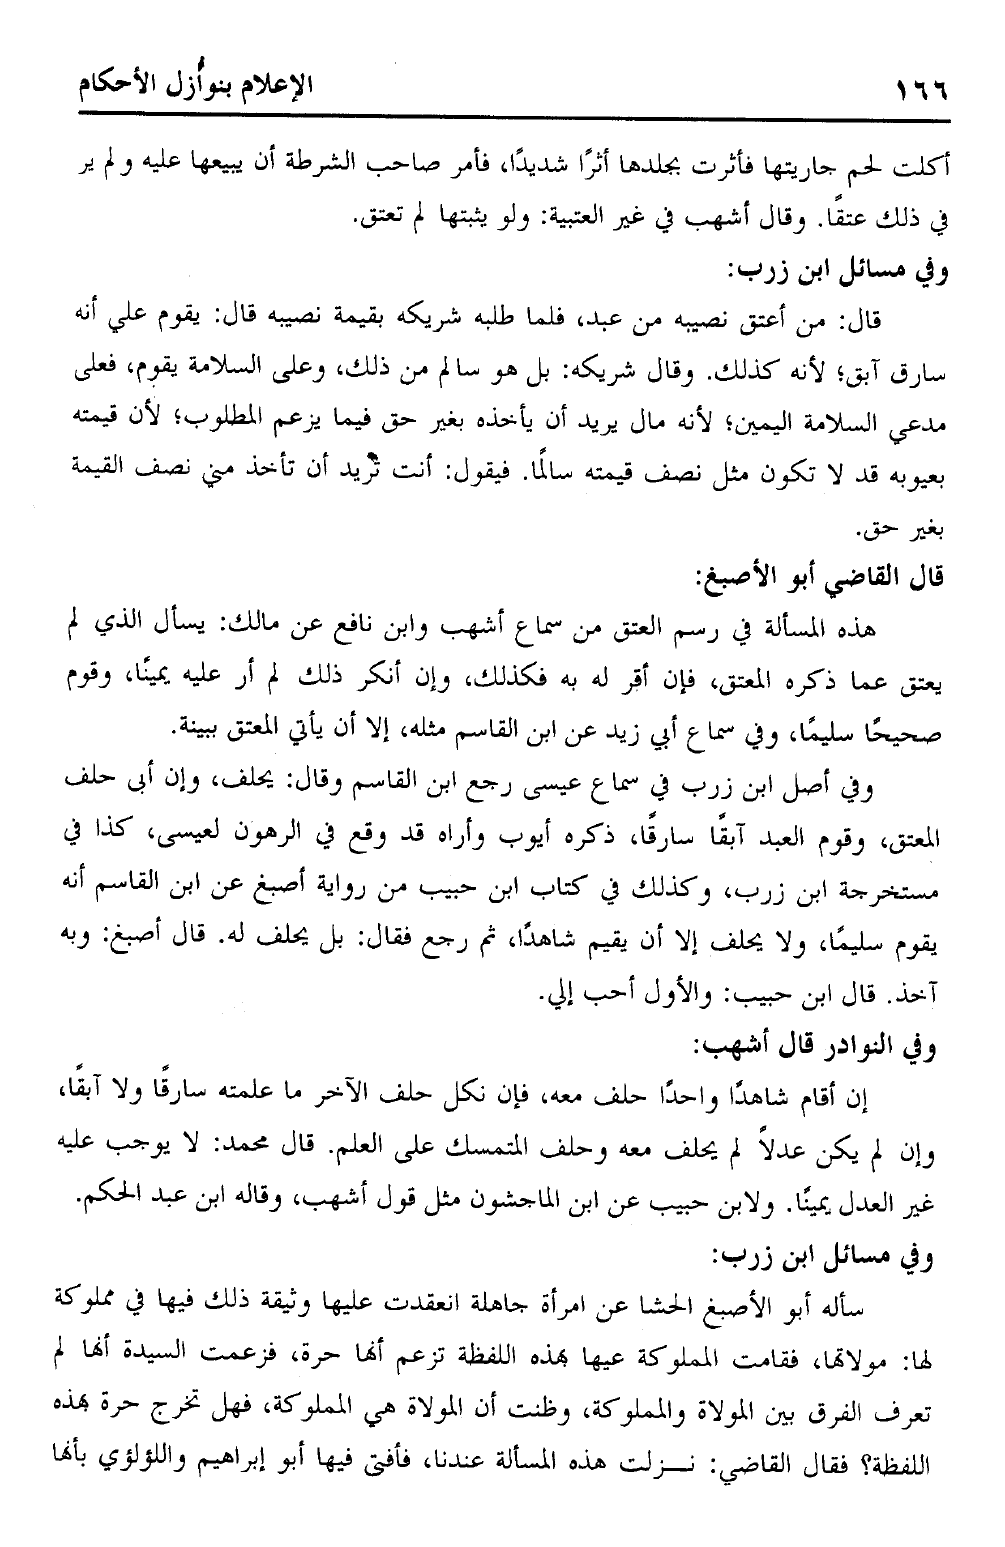 ١٦٦ الإعلام بنوازل الأحكام
أكلت لحم جاريتها فأثرت بجلدها أثرًا شديدًا، فأمر صاحب الشرطة أن يبيعها عليه ولم ير
في ذلك عتقًا. وقال أشهب في غير العتبية: ولو يثبتها لم تعتق.
وفي مسائل ابن زرب:
قال: من أعتق نصيبه من عبد، فلما طلبه شريكه بقيمة نصيبه قال: يقوم علي أنه
سارق آبق؛ لأنه كذلك. وقال شريكه: بل هو سالم من ذلك، وعلى السلامة يقوم، فعلى
مدعي السلامة اليمين؛ لأنه مال يريد أن يأخذه بغير حق فيما يزعم المطلوب؛ لأن قيمته
بعيوبه قد لا تكون مثل نصف قيمته سالمًا. فيقول: أنت تُريد أن تأخذ مني نصف القيمة
بغير حق.
قال القاضي أبو الأصبغ:
هذه المسألة في رسم العتق من سماع أشهب وابن نافع عن مالك: يسأل الذي لم
يعتق عما ذكره المعتق، فإن أقر له به فكذلك، وإن أنكر ذلك لم أر عليه يمينًا، وقوم
صحيحًا سليمًا، وفي سماع أبي زيد عن ابن القاسم مثله، إلا أن يأتي المعتق ببينة.
وفي أصل ابن زرب في سماع عيسى رجع ابن القاسم وقال: يحلف، وإن أبى حلف
المعتق، وقوم العبد آبقًا سارقًا، ذكره أيوب وأراه قد وقع في الرهون لعيسى، كذا في
مستخرجة ابن زرب، وكذلك في كتاب ابن حبيب من رواية أصبغ عن ابن القاسم أنه
يقوم سليمًا، ولا يحلف إلا أن يقيم شاهدًا، ثم رجع فقال: بل يحلف له. قال أصبغ: وبه
آخذ. قال ابن حبيب: والأول أحب إلي.
وفي النوادر قال أشهب:
إن أقام شاهدًا واحدًا حلف معه، فإن نكل حلف الآخر ما علمته سارقًا ولا آبقًا،
وإن لم يكن عدلاً لم يحلف معه وحلف المتمسك على العلم. قال محمد: لا يوجب عليه
غير العدل يمينًا. ولابن حبيب عن ابن الماجشون مثل قول أشهب، وقاله ابن عبد الحكم.
وفي مسائل ابن زرب:
سأله أبو الأصبغ الحشا عن امرأة جاهلة انعقدت عليها وثيقة ذلك فيها في مملوكة
لها: مولاتها، فقامت المملوكة عيها بهذه اللفظة تزعم أنها حرة، فزعمت السيدة أنها لم
تعرف الفرق بين المولاة والمملوكة، وظنت أن المولاة هي المملوكة، فهل تخرج حرة بهذه
اللفظة؟ فقال القاضي: نـــزلت هذه المسألة عندنا، فأفتى فيها أبو إبراهيم واللؤلؤي بأنها